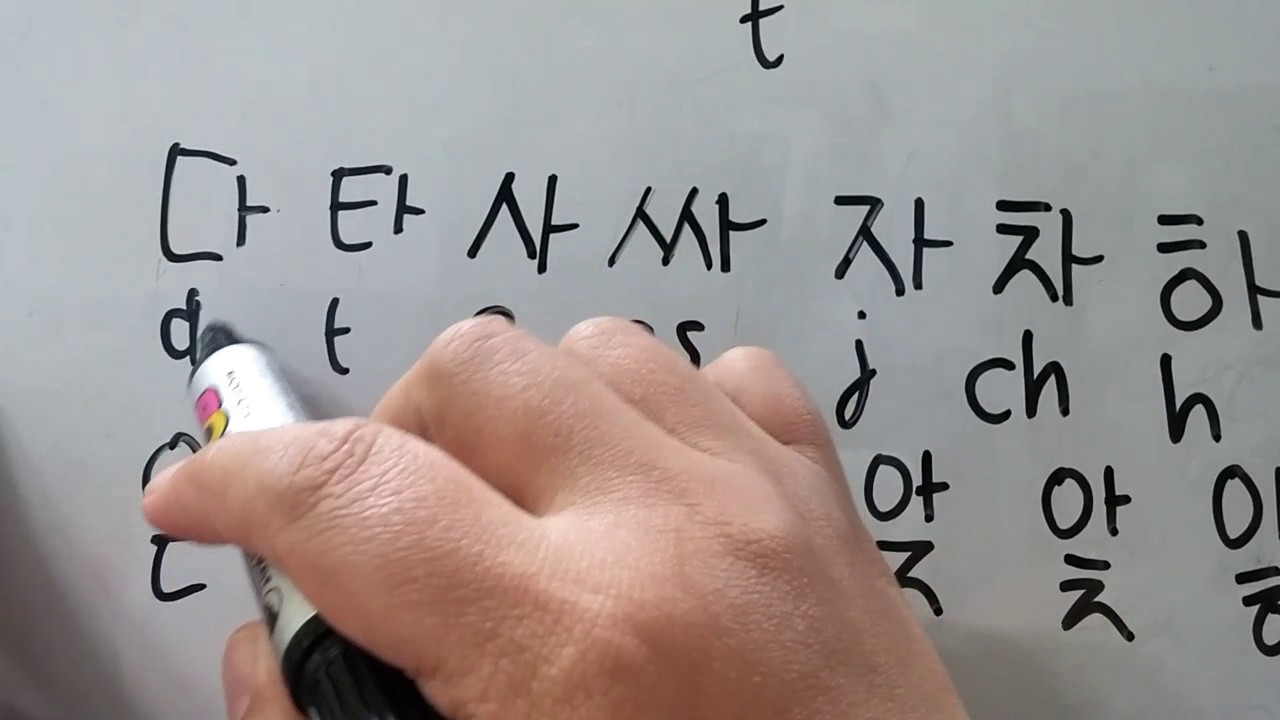 t
다 타 사 싸 자 차 하
d t s j ch h
앚 앛 앟